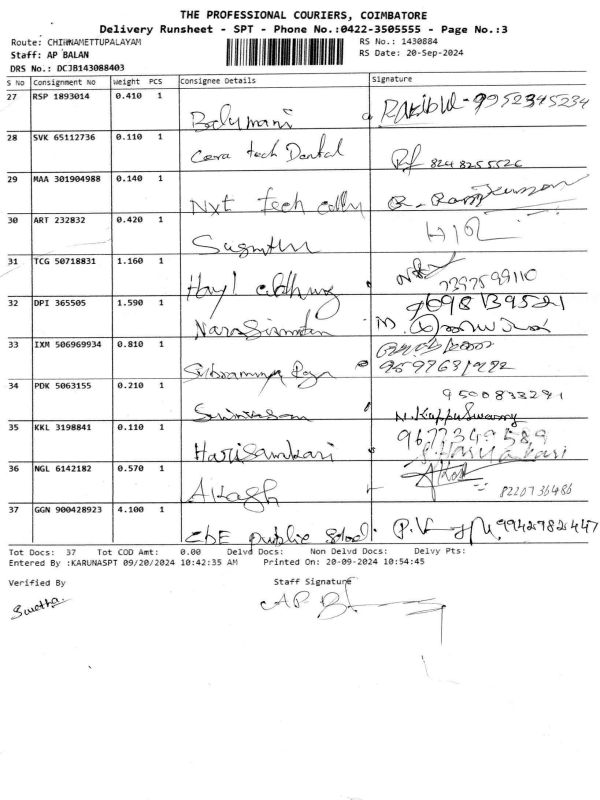 THE PROFESSIONAL COURIERS, COIMBATORE
Delivery Runsheet - SPT - Phone No.:0422-3505555 - Page No.:3
Route: CHINNAMETTUPALAYAM RS No.: 1430884
Staff: AP BALAN RS Date: 20-Sep-2024
DRS No.: DCJB143088403
S No Consignment No Weight PCS Consignee Details Signature
27 RSP 1893014 0.410 1
Balymani 9952345234
28 SVK 65112736 0.110 1
Cera tech Dental 8248255526
29 MAA 301904988 0.140 1
Nxt tech
30 ART 232832 0.420 1
31 TCG 50718831 1.160 1
7397599110
32 DPI 365505 1.590 1
9698139521
33 IXM 506969934 0.810 1
34 PDK 5063155 0.210 1
9500833291
Srinivasan N. Kuppuswamy
35 KKL 3198841 0.110 1
9677349589
Harisankari
36 NGL 6142182 0.570 1
Akash 8220736486
37 GGN 900428923 4.100 1
CbE public School 9942982447
Tot Docs: 37 Tot COD Amt: 0.00 Delvd Docs: Non Delvd Docs: Delvy Pts:
Entered By :KARUNASPT 09/20/2024 10:42:35 AM Printed On: 20-09-2024 10:54:45
Verified By Staff Signature
Swetha. AP